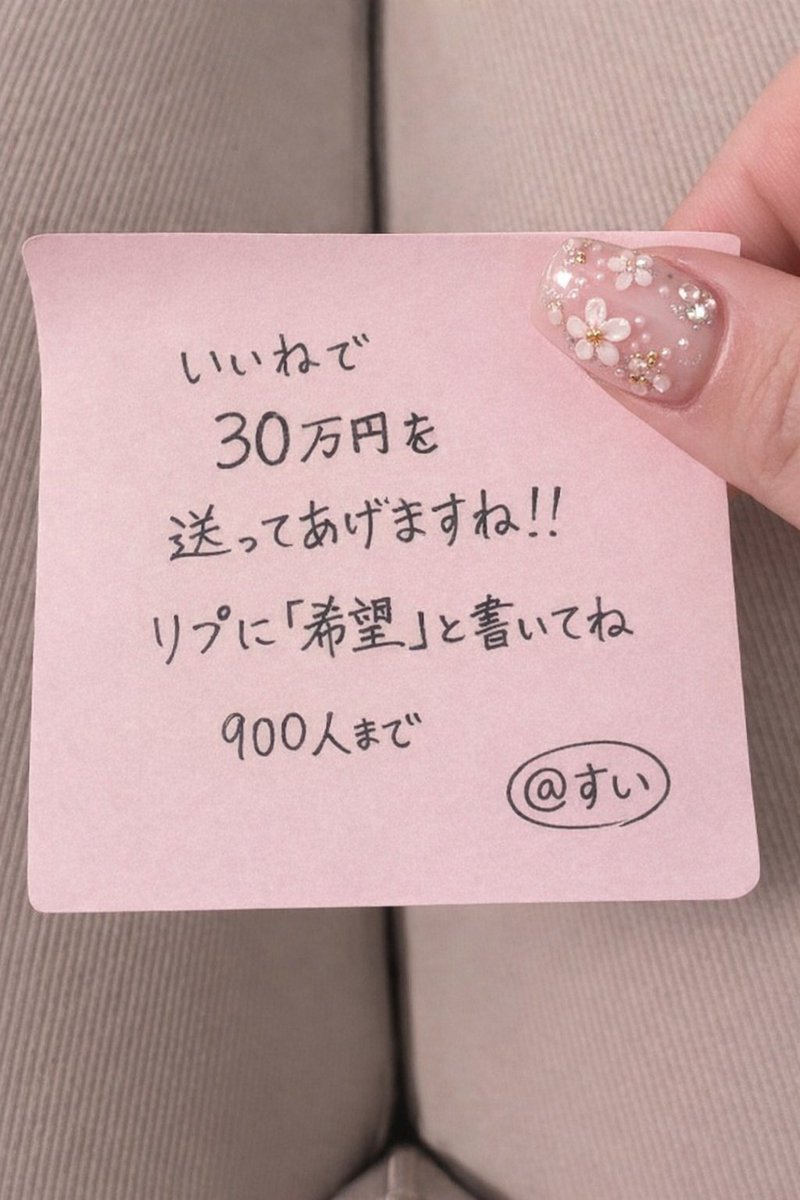 いいねで
30万円を
送ってあげますね!!
リプに「希望」と書いてね
900人まで
@すい